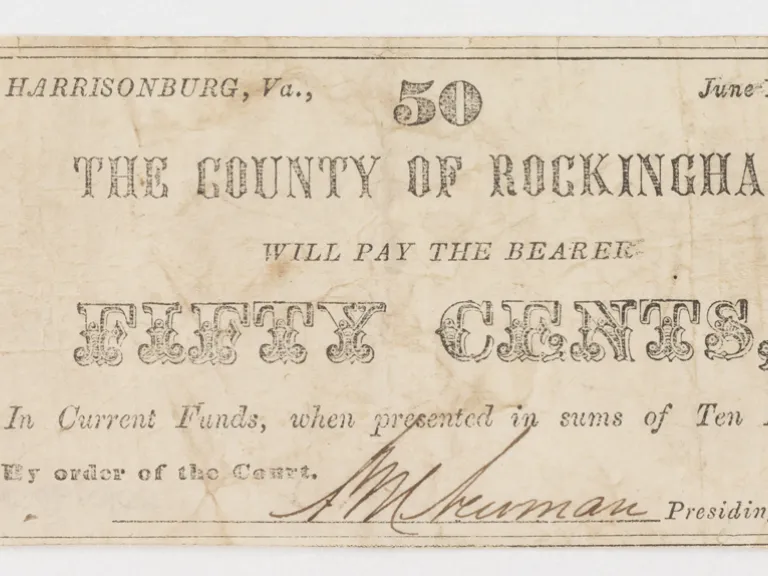 HARRISONBURG, Va., 50 June
THE COUNTY OF ROCKINGHA
WILL PAY THE BEARER
FIFTY CENTS,
In Current Funds, when presented in sums of Ten
By order of the Court.
Newman Presidin